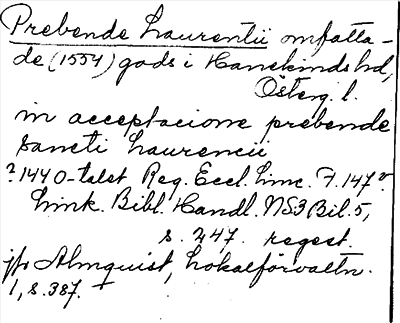 Prebende Laurentii omfatta-
de (1554) gods i Hanekinds hd,
Österg. l.
in acceptacione prebende
sancti Laurencii
? 1440-talet Reg. Eccl. Linc. F. 147 v.
Link. Bibl. Handl. NS3 Bil. 5,
s. 247. regest.
jfr Almquist, Lokalförvaltn.
1, s. 387.